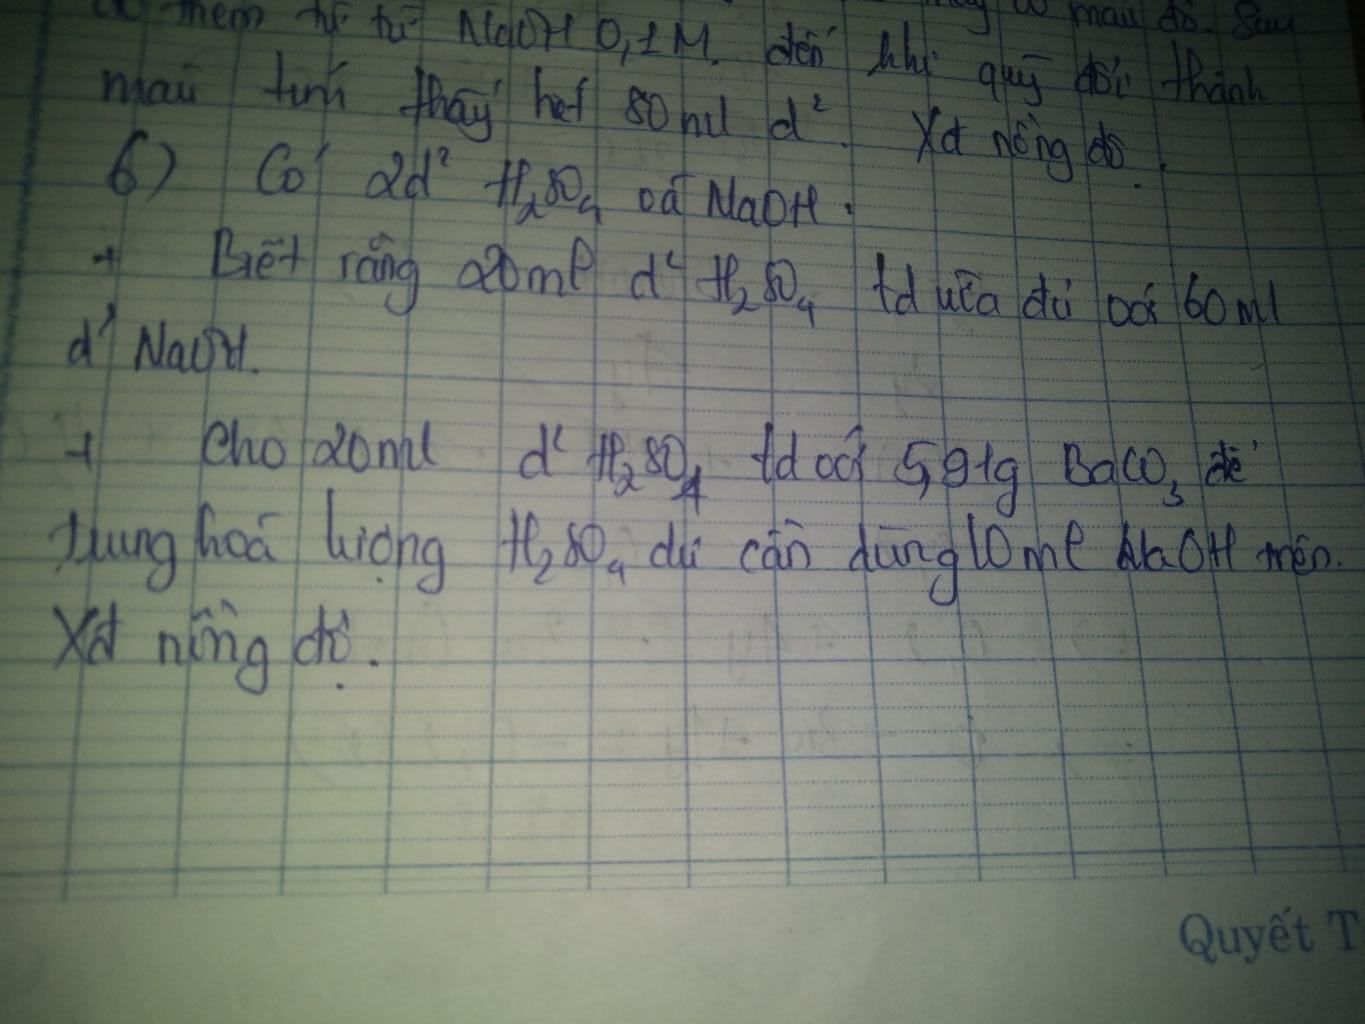 thêm từ từ NaOH 0,1M đến khi quỳ đổi thành màu đỏ. Sau
màu tím thấy hết 80 ml d². Xđ nồng độ.
6) Có 2d² H₂SO₄ và NaOH.
+ Biết rằng 20ml d² H₂SO₄ td vừa đủ với 60ml
d² NaOH.
+ Cho 20ml d² H₂SO₄ td với 5,91g BaCO₃ để
trung hoà lượng H₂SO₄ dư cần dùng 10ml NaOH trên.
Xđ nồng độ.
Quyết T